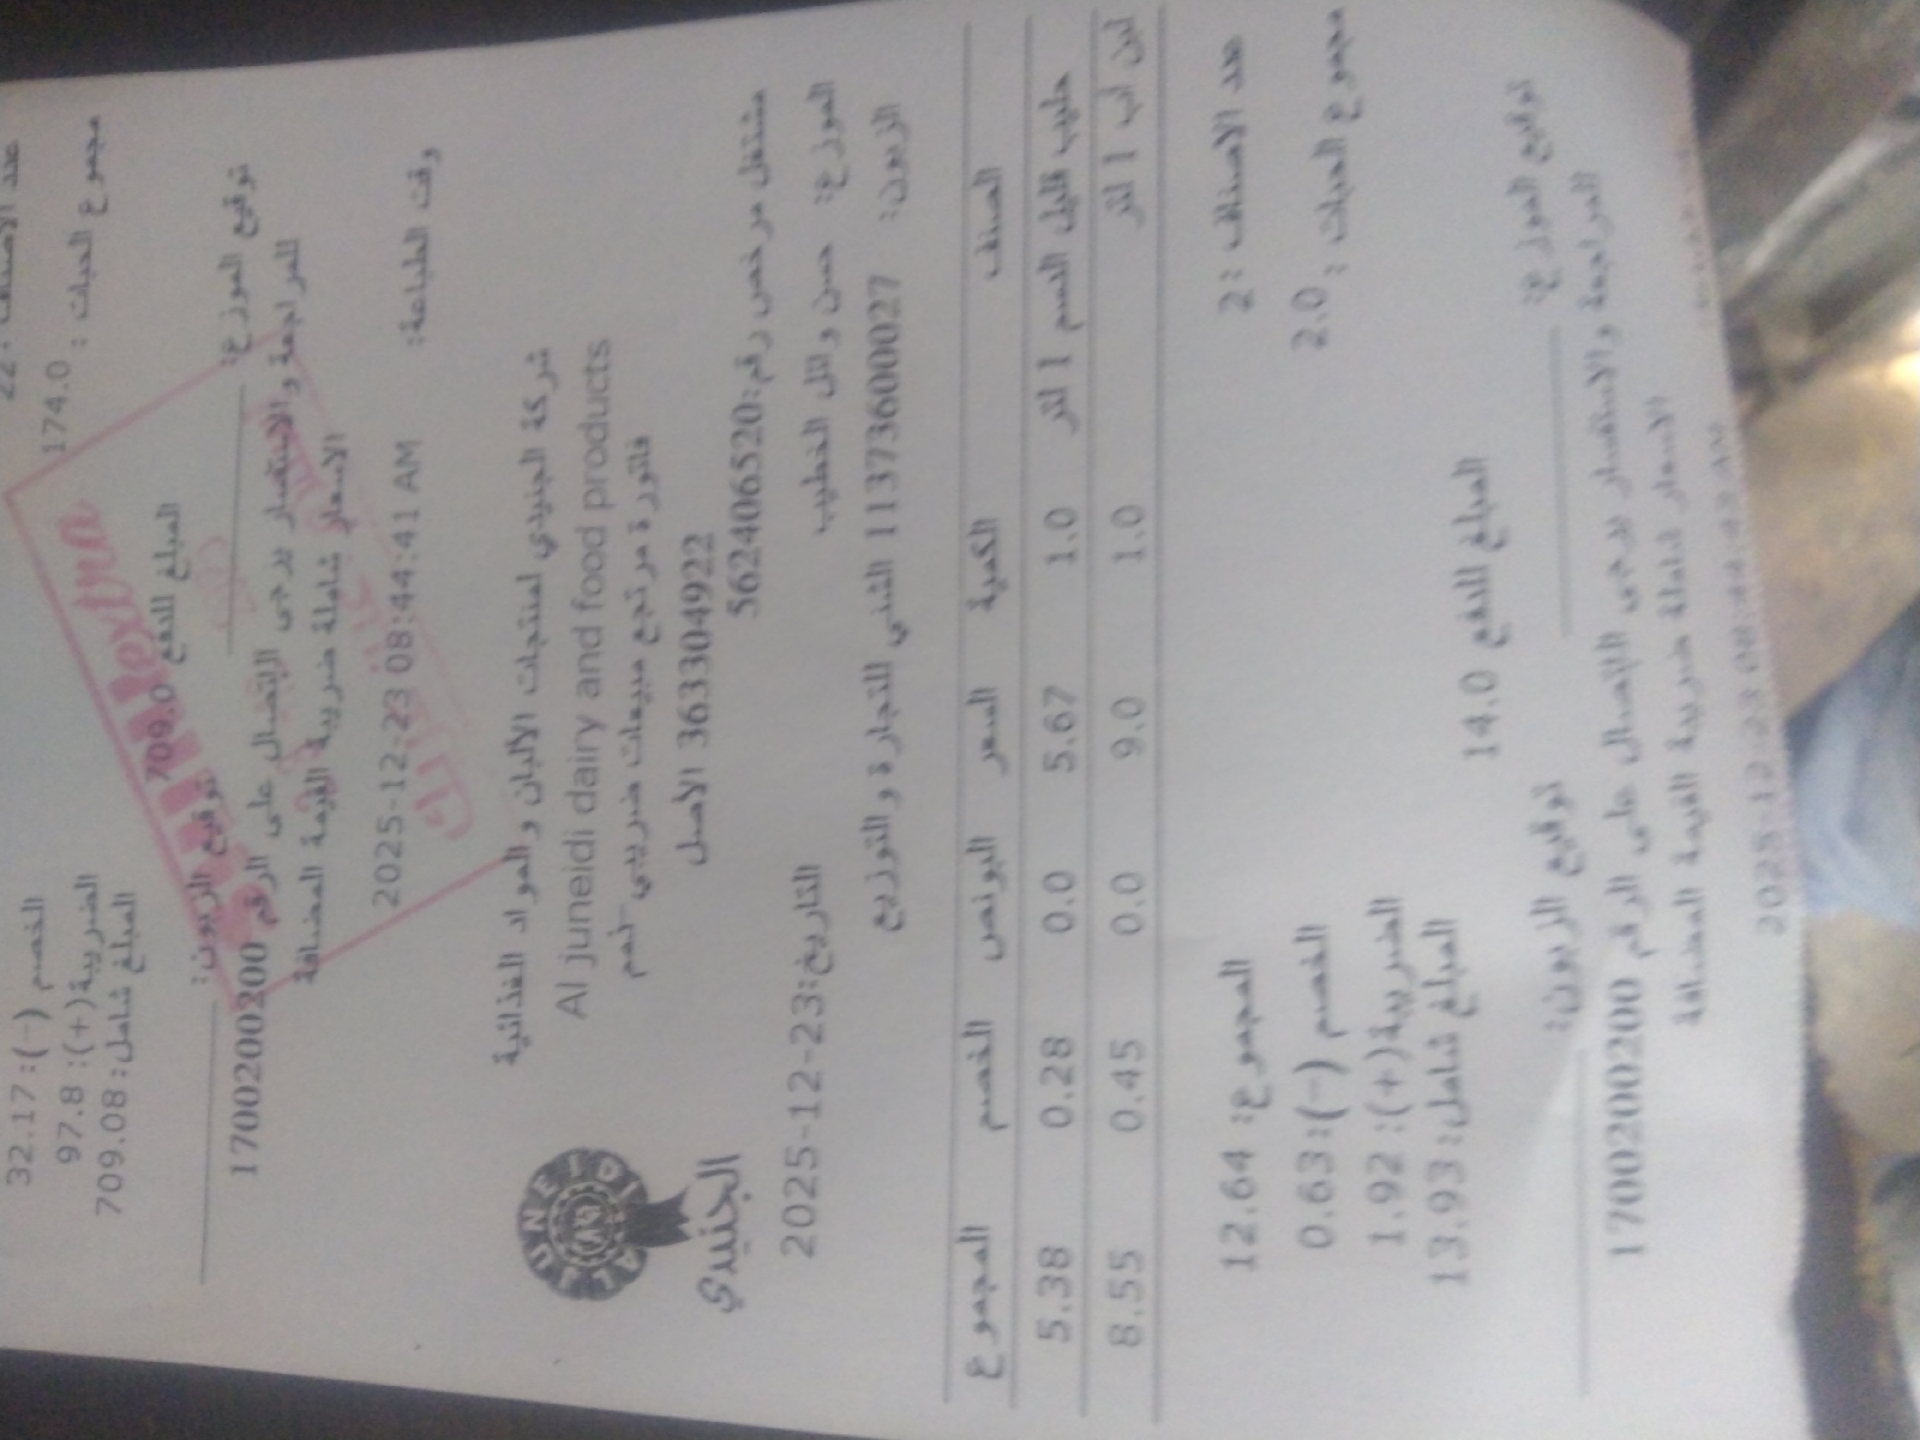 عدد الاصناف : 22
مجموع الحبات : 174.0
الخصم (-): 32.17
الضريبة(+): 97.8
المبلغ شامل: 709.08
المبلغ للدفع 709.0
توقيع الموزع:
توقيع الزبون:
للمراجعة والاستفسار يرجى الإتصال على الرقم 1700200200
الاسعار شاملة ضريبة القيمة المضافة
وقت الطباعة: 2025-12-23 08:44:41 AM
شركة الجنيدي لمنتجات الألبان والمواد الغذائية
Al juneidi dairy and food products
ALJUNEIDI
الجنيدي
فاتورة مرتجع مبيعات ضريبي
363304922 الاصل
مشتغل مرخص رقم:562406520
الموزع: حسن وائل الخطيب
التاريخ:2025-12-23
الزبون: 1137360027 الشني للتجارة والتوزيع
الصنف الكمية السعر البونص الخصم المجموع
حليب قليل الدسم 1 لتر 1.0 5.67 0.0 0.28 5.38
لبن اب 1 لتر 1.0 9.0 0.0 0.45 8.55
عدد الاصناف : 2
المجموع: 12.64
مجموع الحبات : 2.0
الخصم (-): 0.63
الضريبة(+): 1.92
المبلغ شامل: 13.93
المبلغ للدفع 14.0
توقيع الموزع:
توقيع الزبون:
للمراجعة والاستفسار يرجى الإتصال على الرقم 1700200200
الاسعار شاملة ضريبة القيمة المضافة
2025-12-23 08:44:43 AM